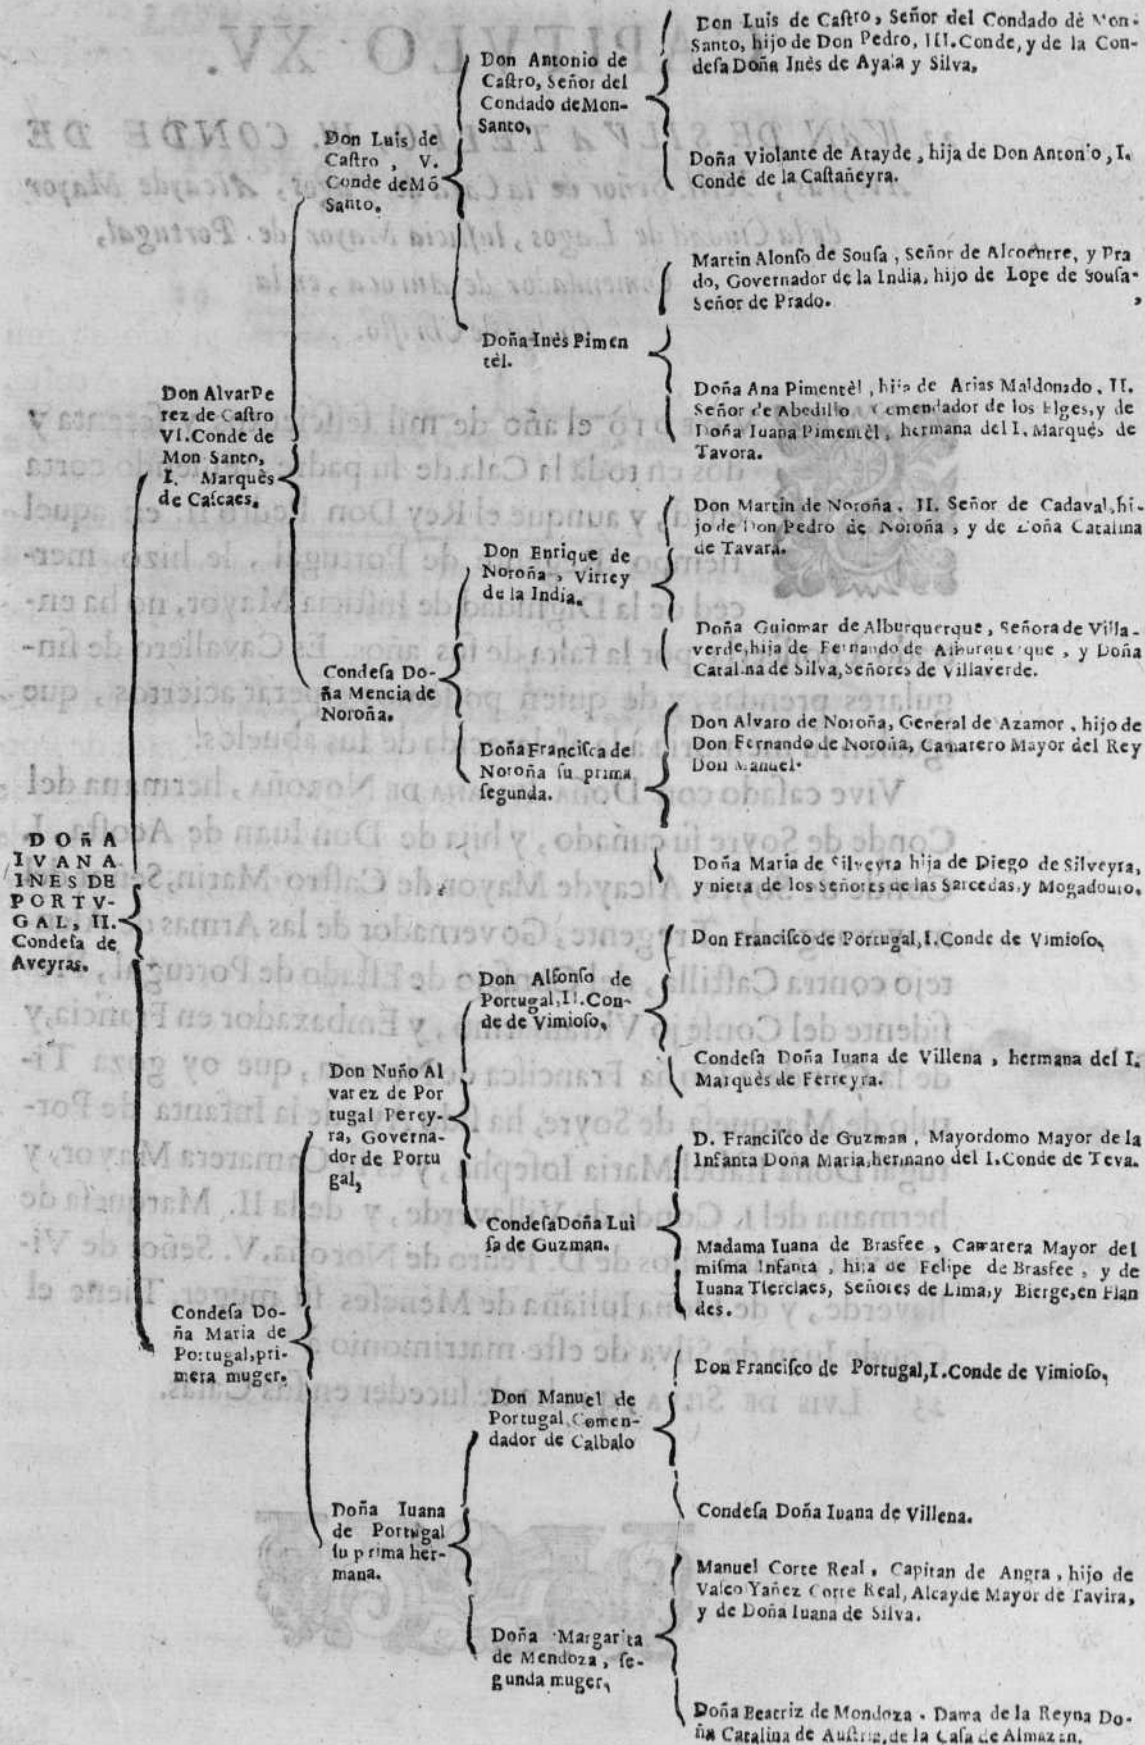 DOñA
IVANA
INES DE
PORTV-
GAL, II.
Condeſa de
Aveyras.
Don AlvarPe
rez de Caſtro
VI.Conde de
Mon Santo,
I. Marquès
de Caſcaes.
Condeſa Do-
ña Maria de
Portugal,pri-
mera muger.
Don Luis de
Caſtro , V.
Conde deMõ
Santo.
Condeſa Do-
ña Mencia de
Noroña.
Don Nuño Al
varez de Por
tugal Percy-
ra, Governa-
dor de Portu
gal,
Doña Iuana
de Portugal
ſu prima her-
mana.
Don Antonio de
Caſtro, Señor del
Condado deMon-
Santo,
Doña Inès Pimen
tèl.
Don Enrique de
Noroña , Virrey
de la India.
Doña Franciſca de
Noroña ſu prima
ſegunda.
Don Alfonſo de
Portugal,II.Con-
de de Vimioſo,
CondeſaDoña Lui
ſa de Guzman.
Don Manuel de
Portugal Comen-
dador de Calbalo
Doña Margarita
de Mendoza , ſe-
gunda muger,
Don Luis de Caſtro, Señor del Condado de Mon-
Santo, hijo de Don Pedro, III.Conde, y de la Con-
deſa Doña Inès de Ayala y Silva,
Doña Violante de Atayde , hija de Don Antonio , I.
Conde de la Caſtañeyra.
Martin Alonſo de Souſa , Señor de Alcoentre, y Pra
do, Governador de la India, hijo de Lope de Souſa-
Señor de Prado. ,
Doña Ana Pimentèl , hija de Arias Maldonado , II.
Señor de Abedillo Comendador de los Elges,y de
Doña Iuana Pimentèl , hermana del I. Marquès de
Tavora.
Don Martin de Noroña , II. Señor de Cadaval,hi-
jo de Don Pedro de Noroña , y de Doña Catalina
de Tavara.
Doña Guiomar de Alburquerque , Señora de Villa-
verde,hija de Fernando de Alburquerque , y Doña
Catalina de Silva,Señores de Villaverde.
Don Alvaro de Noroña, General de Azamor , hijo de
Don Fernando de Noroña, Camarero Mayor del Rey
Don Manuel.
Doña Maria de Silveyra hija de Diego de Silveyra,
y nieta de los Señores de las Sarcedas,y Mogadouro.
Don Franciſco de Portugal,I.Conde de Vimioſo,
Condeſa Doña Iuana de Villena , hermana del I.
Marquès de Ferreyra.
D. Franciſco de Guzman , Mayordomo Mayor de la
Infanta Doña Maria,hermano del I.Conde de Teva.
Madama Iuana de Brasfee , Camarera Mayor del
miſma Infanta , hija de Felipe de Brasfee , y de
Iuana Tierclaes, Señores de Lima,y Bierge,en Flan
des.
Don Franciſco de Portugal,I.Conde de Vimioſo,
Condeſa Doña Iuana de Villena.
Manuel Corte Real , Capitan de Angra , hijo de
Vaſco Yañez Corte Real, Alcayde Mayor de Tavira,
y de Doña Iuana de Silva.
Doña Beatriz de Mondoza , Dama de la Reyna Do-
ña Catalina de Auſtria,de la Caſa de Almazan.